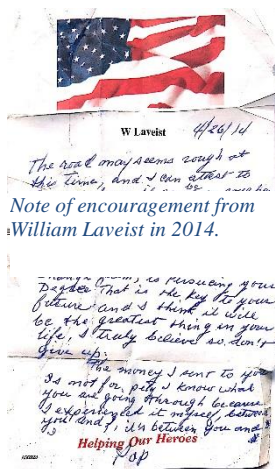 W Laveist 4/26/14
The road may seems rough at
this time, and I can attest to
Note of encouragement from
William Laveist in 2014.
is persucing your
Degree that is the key to your
future and I think it will
be the greatest thing in your
life, I truly believe so. don't
give up.
The money I sent to you
Is not for pety I know what
you are going through because
I experienced it myself, between
you and I, its between you and
Helping Our Heroes
Pop